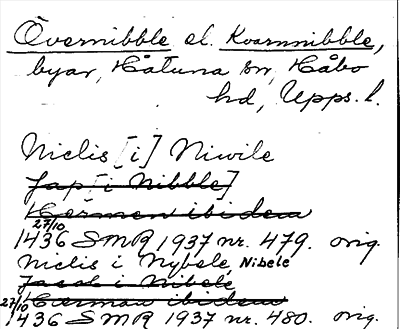 Övernibble el. Kvarnnibble,
byar, Håtuna sn, Håbo
hd, Upps. l.
Niclis [i] Niwile
Jap [i Nibble]
Herman ibidem
27/10
1436 SMR 1937 nr. 479. orig.
Niclis i Nybele, Nibele
Jacob i Nibele
27/10 Herman ibidem
1436 SMR 1937 nr. 480. orig.